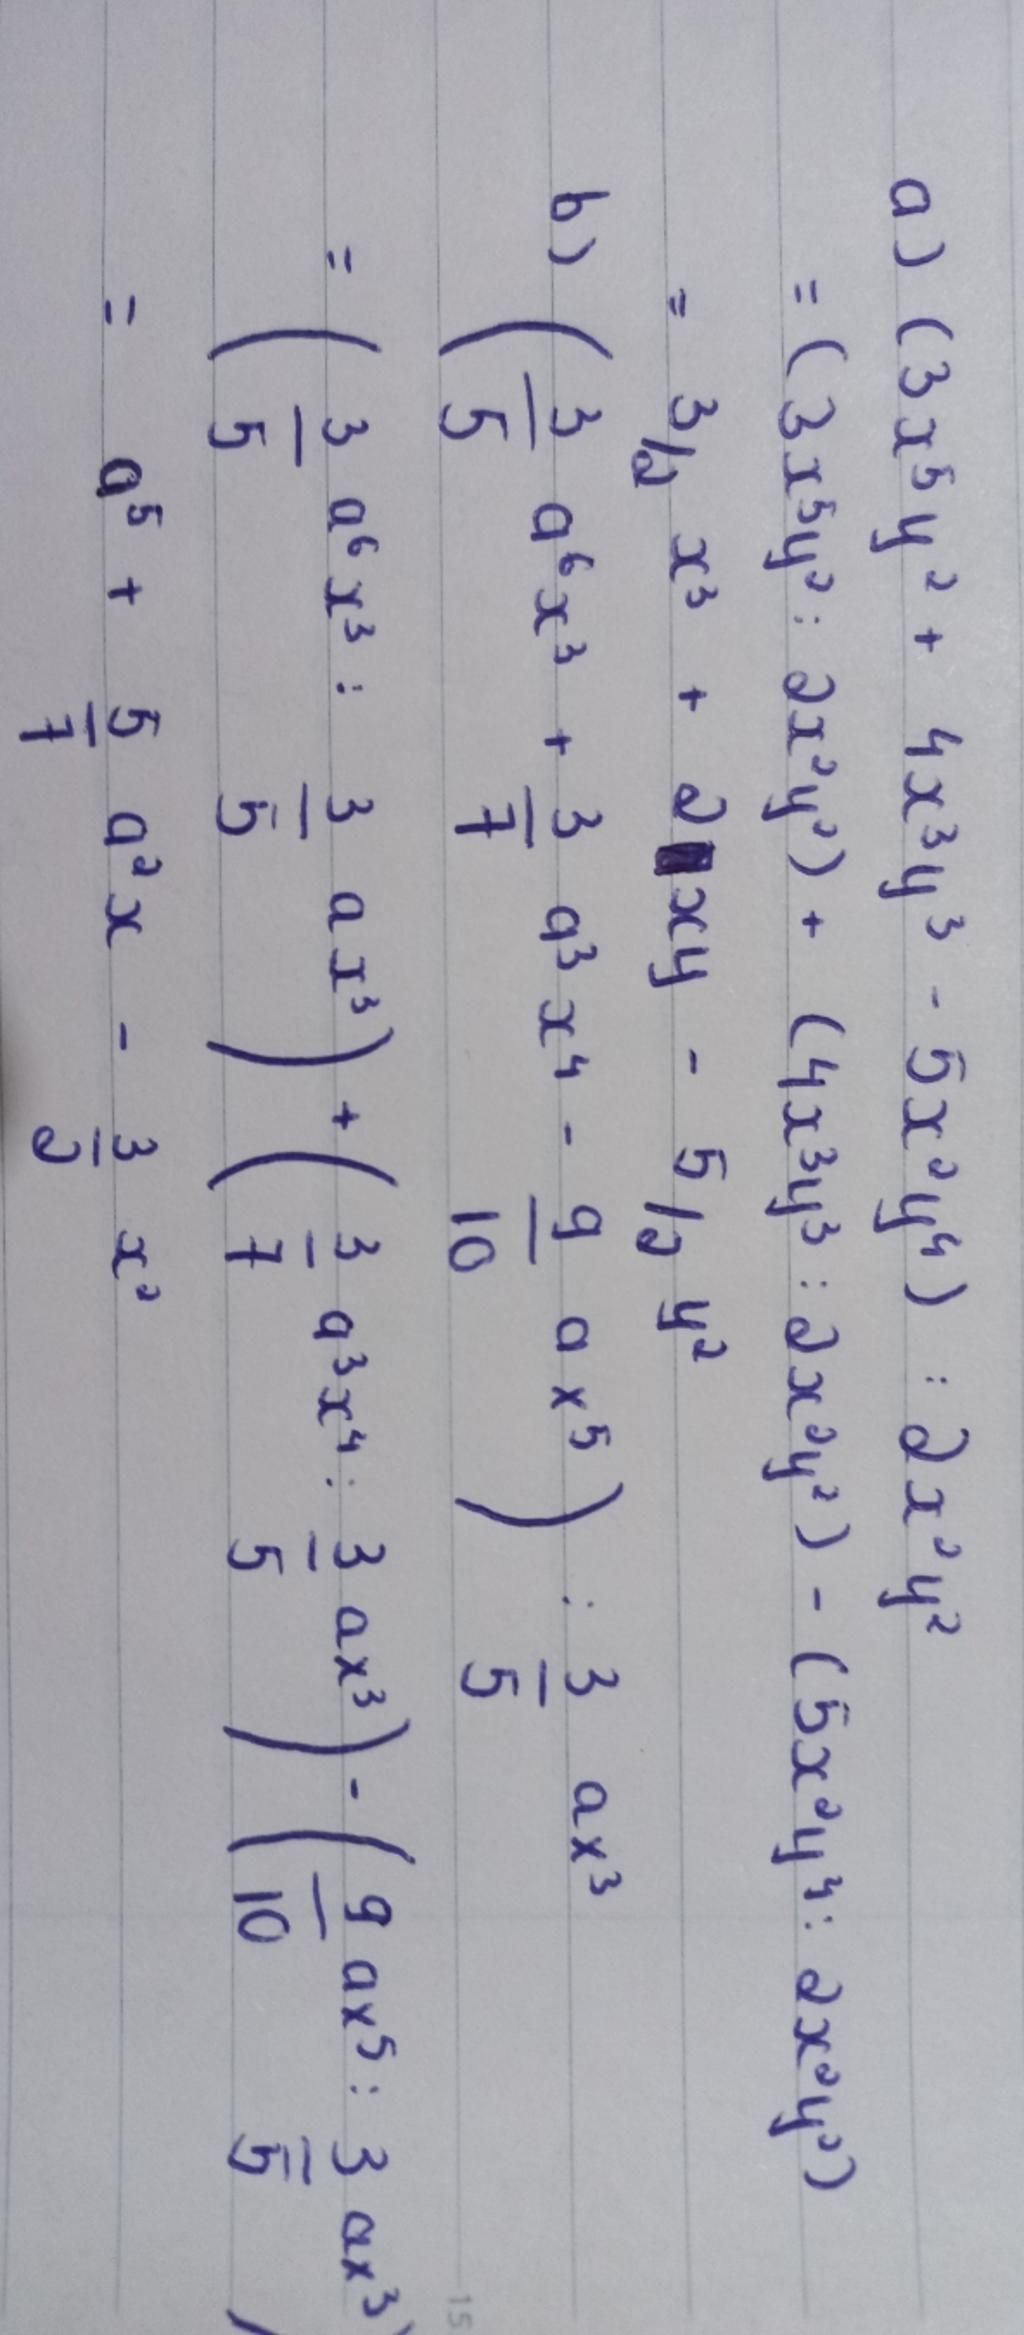 a) (3x⁵y² + 4x³y³ - 5x²y⁴) : 2x²y²
= (3x⁵y² : 2x²y²) + (4x³y³ : 2x²y²) - (5x²y⁴ : 2x²y²)
= 3/2 x³ + 2xy - 5/2 y²
b) (3/5 a⁶x³ + 3/7 a³x⁴ - 9/10 ax⁵) : 3/5 ax³
= (3/5 a⁶x³ : 3/5 ax³) + (3/7 a³x⁴ : 3/5 ax³) - (9/10 ax⁵ : 3/5 ax³)
= a⁵ + 5/7 a²x - 3/2 x²
15